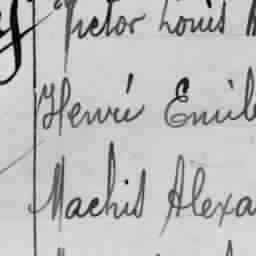 Victor Louis
Henri Emile
Machis Alexa